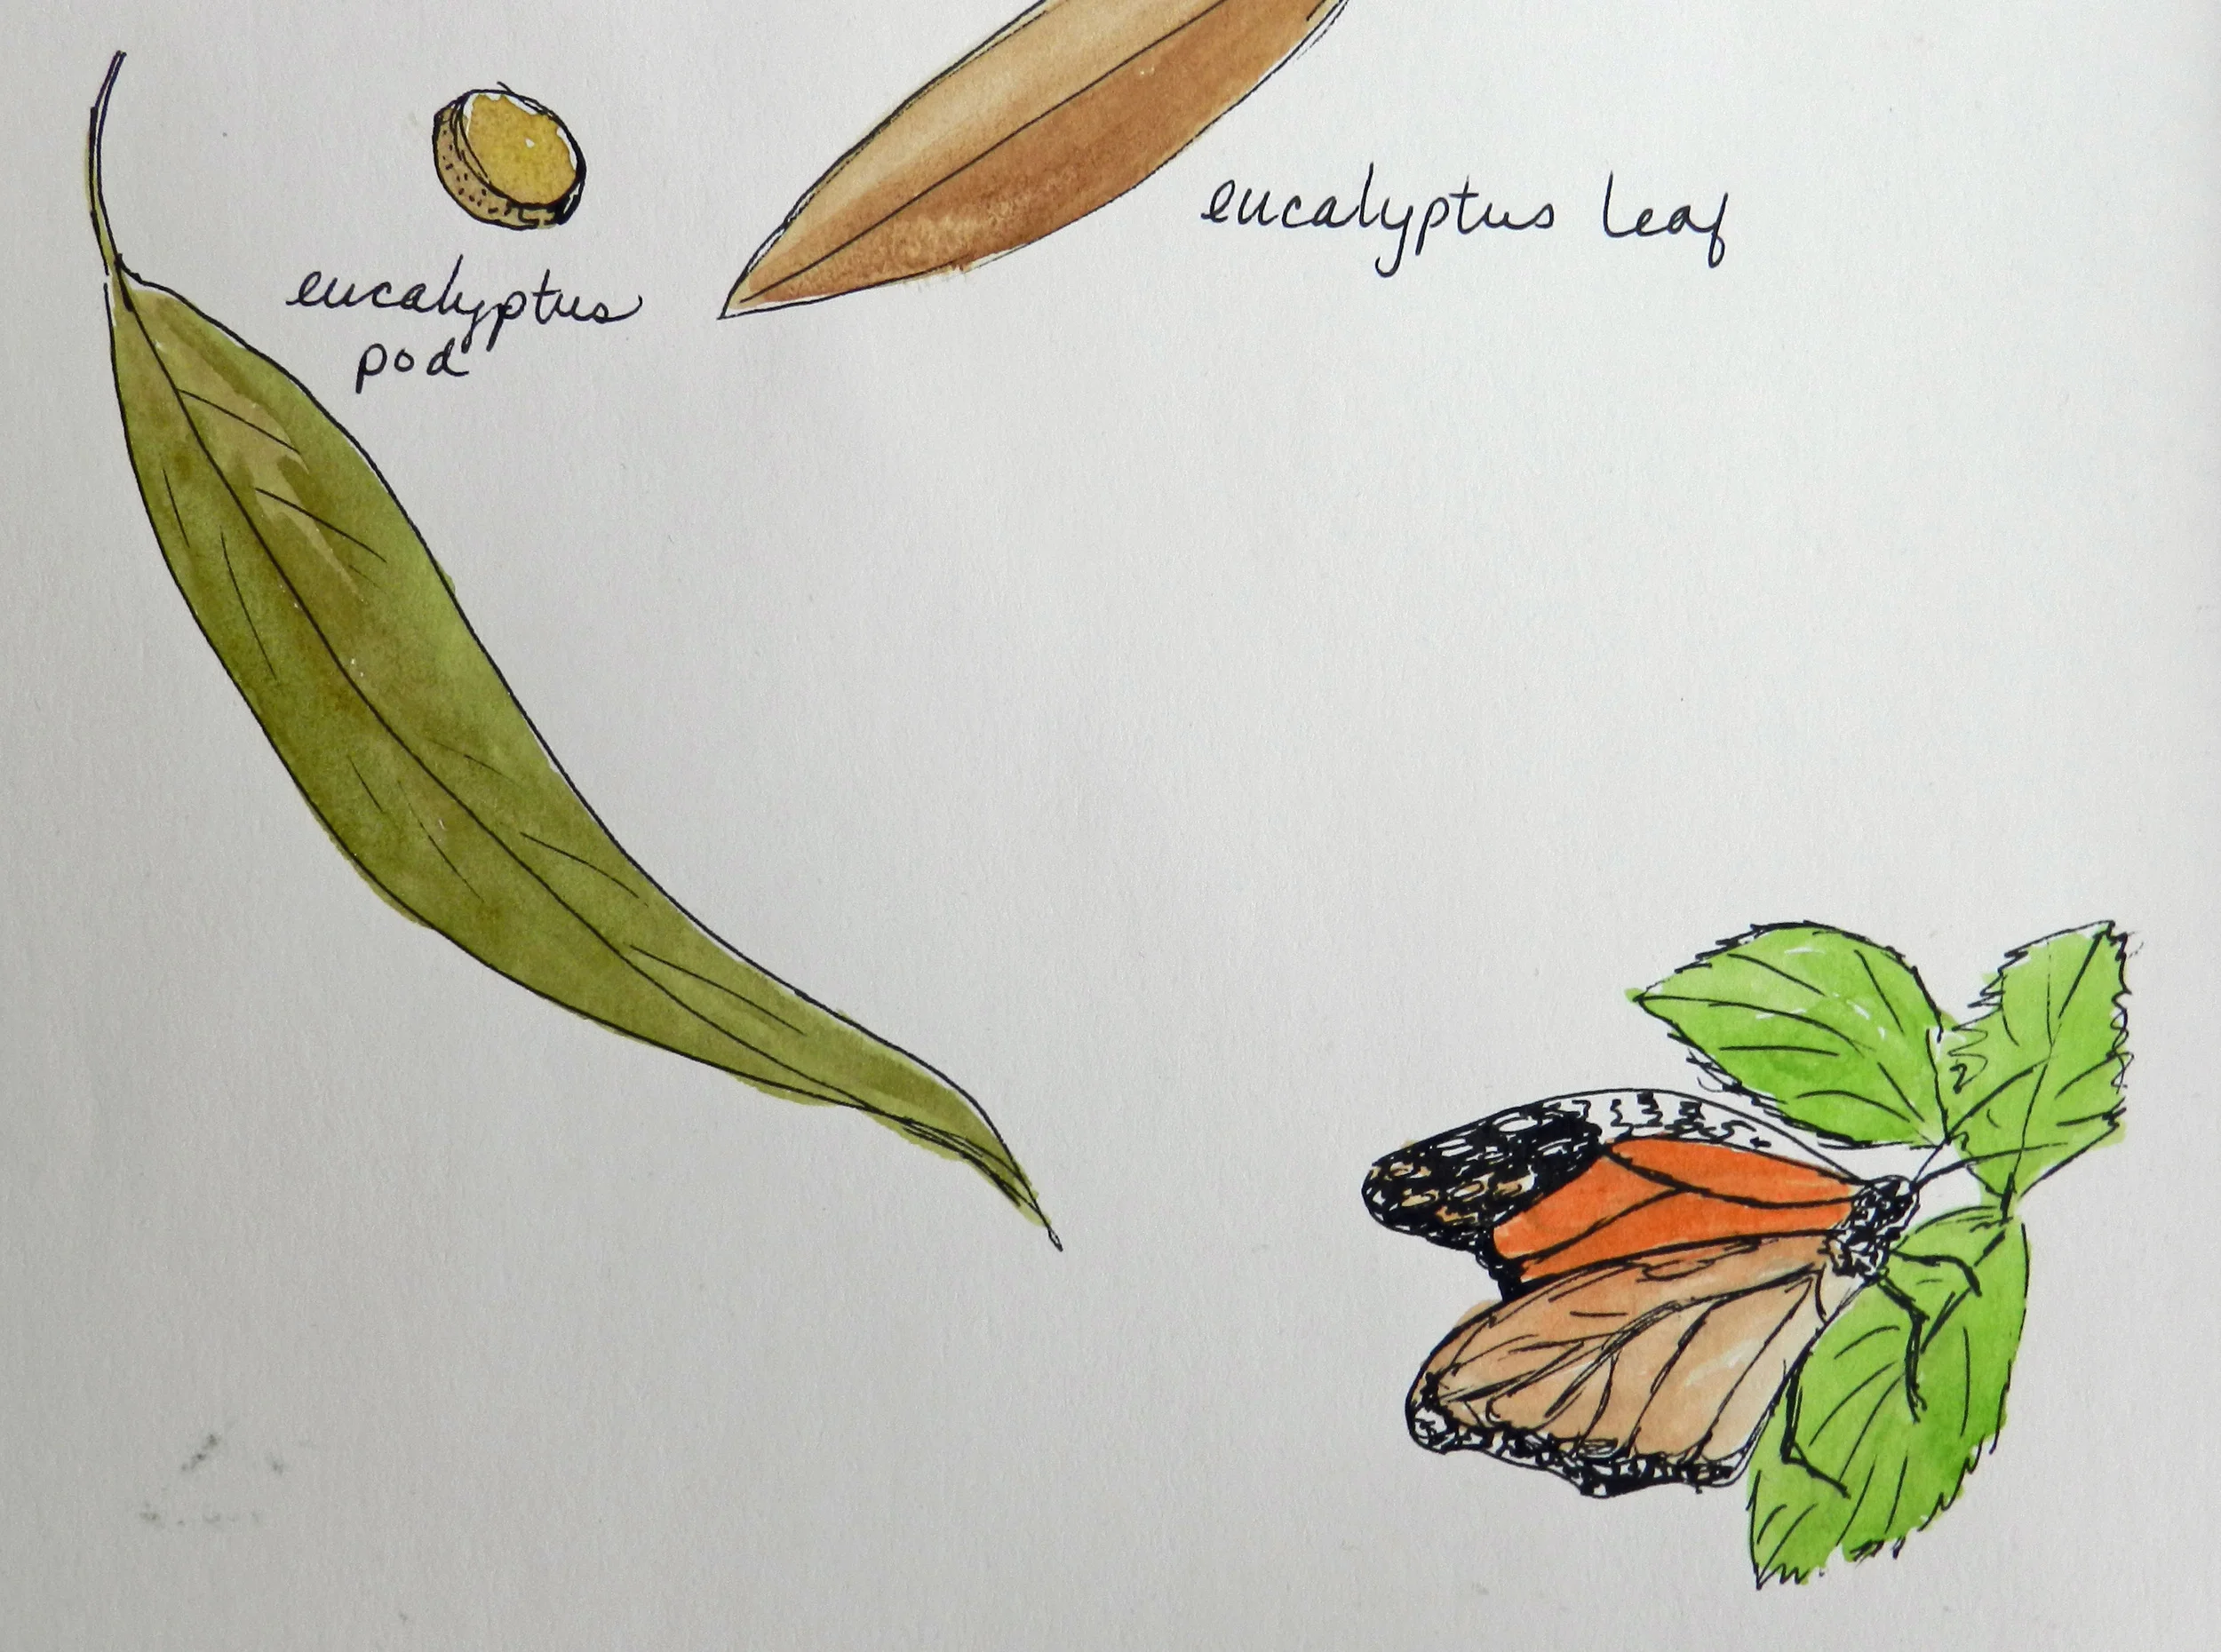 eucalyptus leaf
eucalyptus
pod